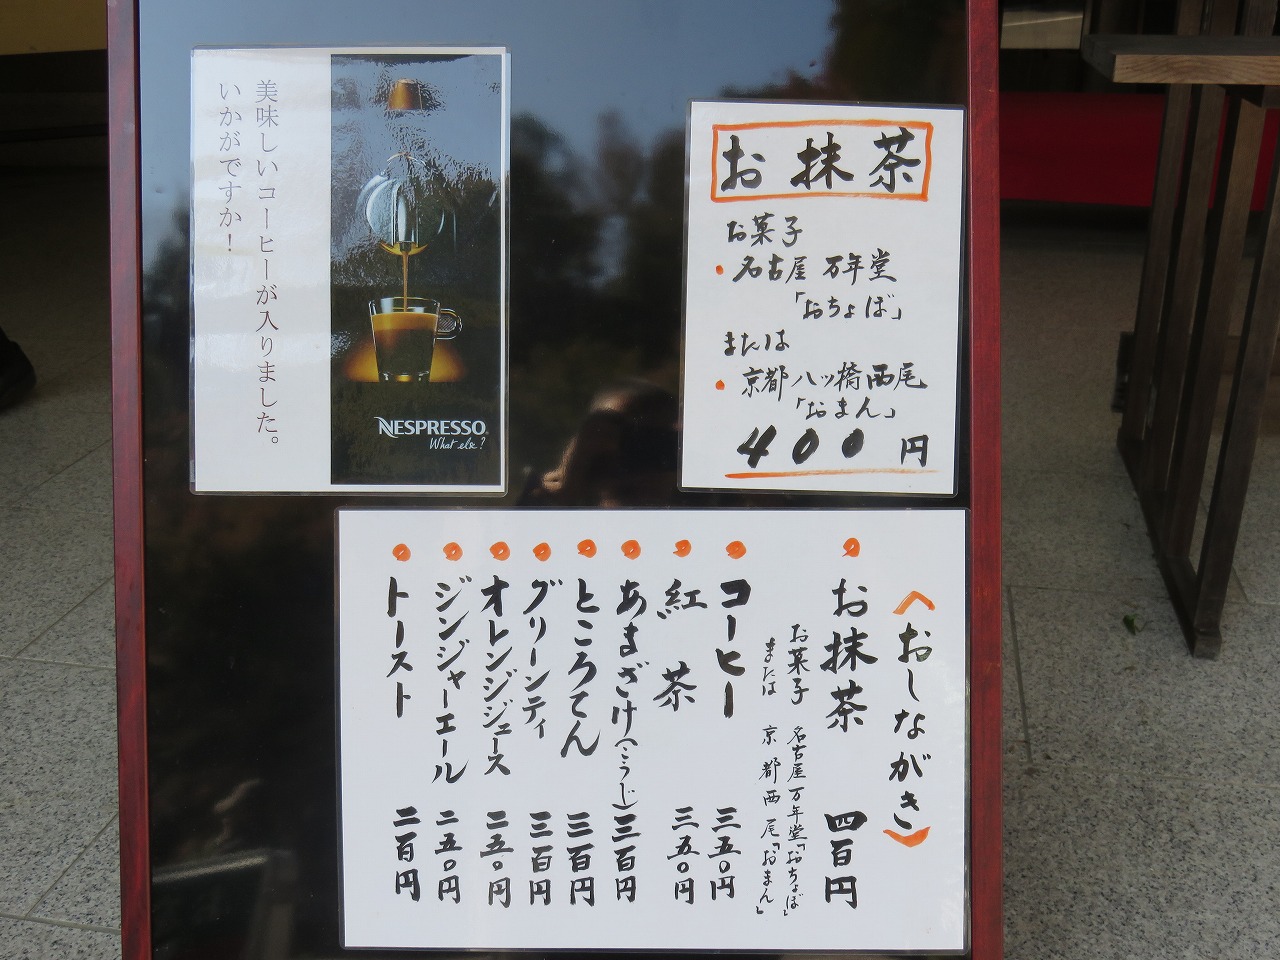 美味しいコーヒーが入りました。
いかがですか！
NESPRESSO
What else?
お抹茶
お菓子
・名古屋 万年堂
「おちょぼ」
または
・京都 八ッ橋西尾
「おまん」
400円
〈おしながき〉
お抹茶 四百円
お菓子 名古屋万年堂「おちょぼ」
または 京都西尾「おまん」
コーヒー 三五〇円
紅茶 三五〇円
あまざけ(こうじ) 三百円
ところてん 三百円
グリーンティ 三百円
オレンジジュース 二五〇円
ジンジャーエール 二五〇円
トースト 二百円